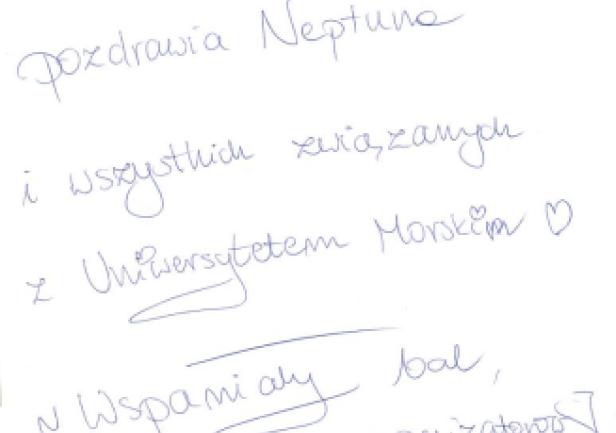 pozdrawia Neptuna
i wszystkich związanych
z Uniwersytetem Morskim ♡
Wspaniały bal,